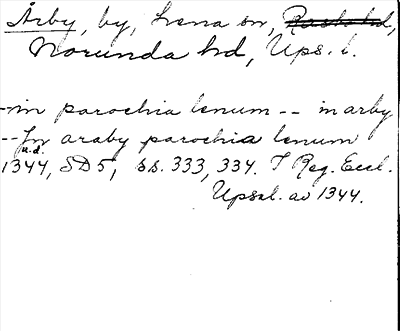 Årby, by, Lena sn,
Norunda hd, Ups. l.
--in parochia lenum -- in arby
--In araby parochia lenum
u.d.
1344, SD5, ss. 333, 334. I Reg. Eccl.
Upsal. av 1344.